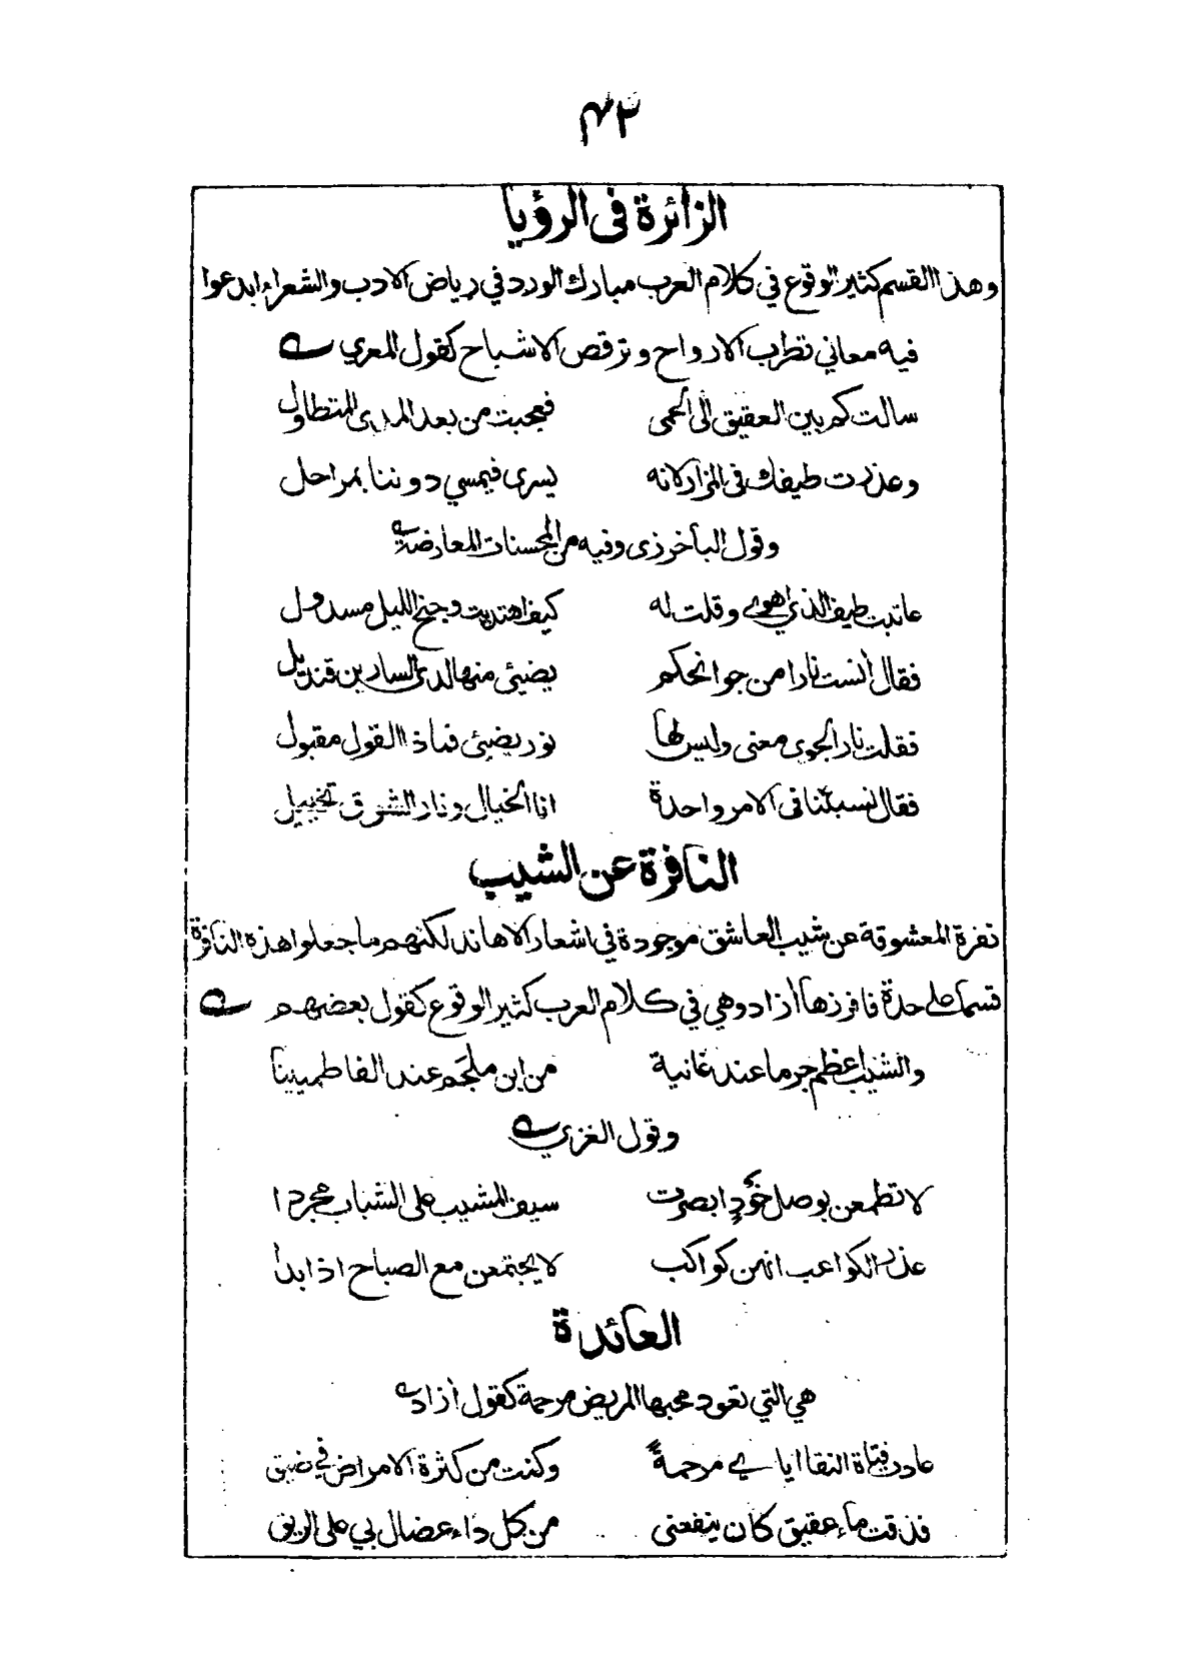 ٤٢
الزائرة فى الرؤيا
وهذا القسم كثير الوقوع في كلام العرب مبارك الورد في رياض الادب والشعراء ابدعوا
فيه معاني تطرب الارواح وترقص الاشباح كقول المعري
سالت كم بين العقيق الى الحمى فعجبت من بعد المدى المتطاول
وعذرت طيفك فى المزار لانه يسرى فيمسي دوننا بمراحل
وقول الباخرذى وفيه من المحسنات المعارضة
عاتبت طيف الذي اهوى وقلت له كيف اهتديت وجنح الليل مسدول
فقال أنست نارا من جوانحكم يضيئ منها لدى السارين قنديل
فقلت نار الجوى معنى وليس لها نور يضيئ فماذا القول مقبول
فقال نسبتنا فى الامر واحدة انا الخيال ونار الشوق تخييل
النافرة عن الشيب
نفرة المعشوقة عن شيب العاشق موجودة في اشعار الاهاند لكنهم ما جعلوا هذه النافرة
قسما على حدة فافرزها أزاد وهي في كلام العرب كثير الوقوع كقول بعضهم
والشيب اعظم جرما عند غانية من ابن ملجم عند الفاطميينا
وقول الغزي
لا تطمعن بوصل خود ابصرت سيف المشيب على الشباب مجردا
عذر الكواعب انهن كواكب لا يجتمعن مع الصباح اذا بدا
العائدة
هي التي تعود محبها المريض مرحمة كقول أزاد
عادت فتاة النقا ايايے مرحمةً وكنت من كثرة الامراض في ضيق
فذقت ماء عقيق كان ينفعنى من كل داء عضال بي على الريق